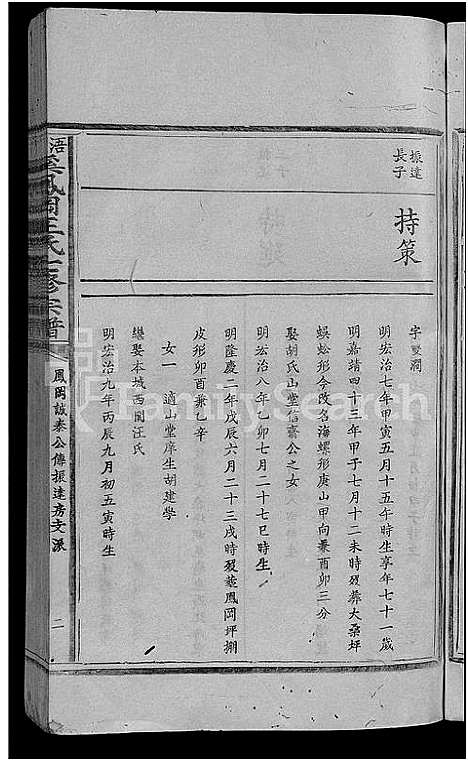 振達
長子
持策
字雙澗
明宏治七年甲寅五月十五午時生享年七十一歲
明嘉靖四十三年甲子七月十二未時歿葬大桑坪
蜈蚣形今改名海螺形庚山甲向兼酉卯三分
娶胡氏山堂信齋公之女
明宏治八年乙卯七月二十七巳時生
明隆慶二年戊辰六月二十三戌時歿葬鳳岡坪捌
皮形卯酉兼乙辛
女一 適山堂庠生胡建學
繼娶本城西関汪氏
明宏治九年丙辰九月初五寅時生
鳳岡王氏修宗譜
鳳岡誠泰公傳振達房文派
二
FamilySearch